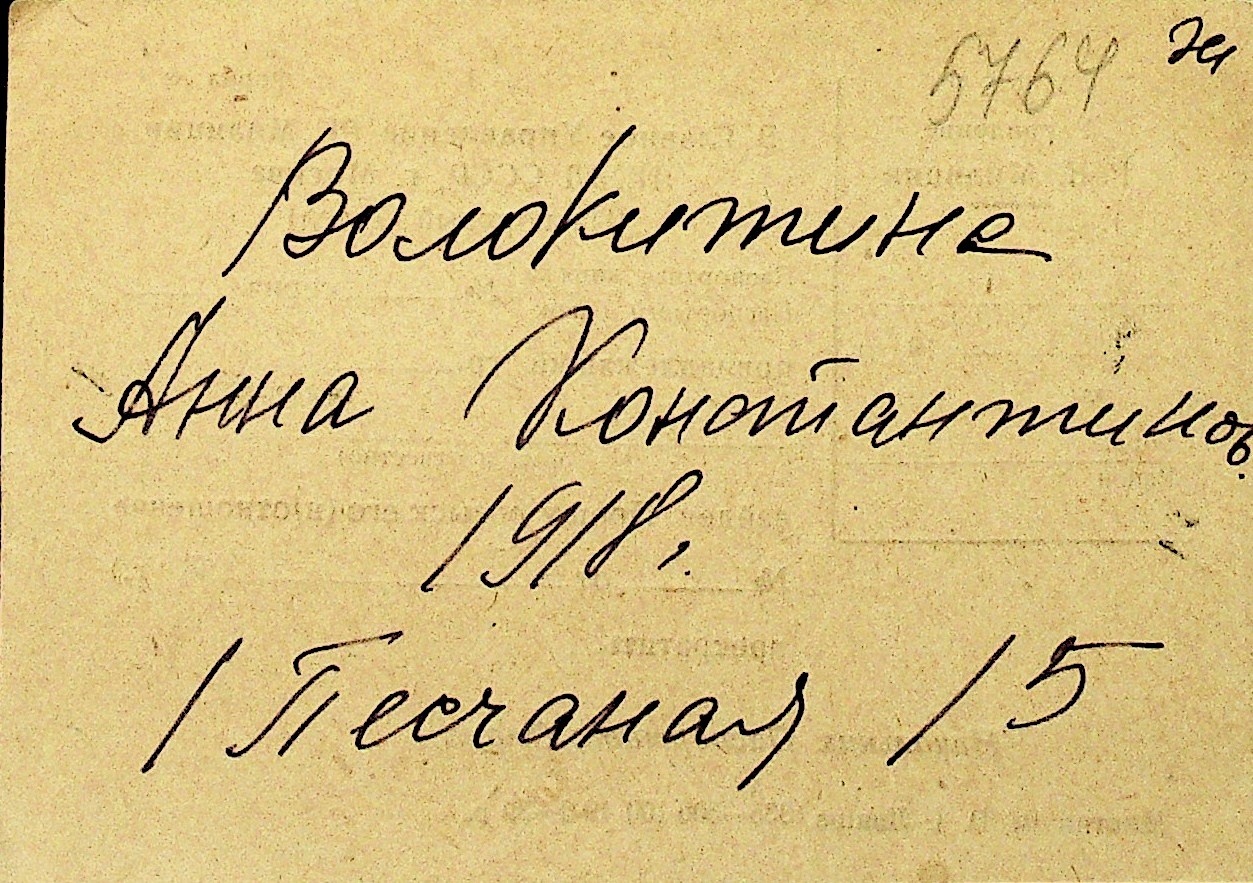 5764
Волокитина
Анна Константинов.
1918 г.
1 Песчаная 15